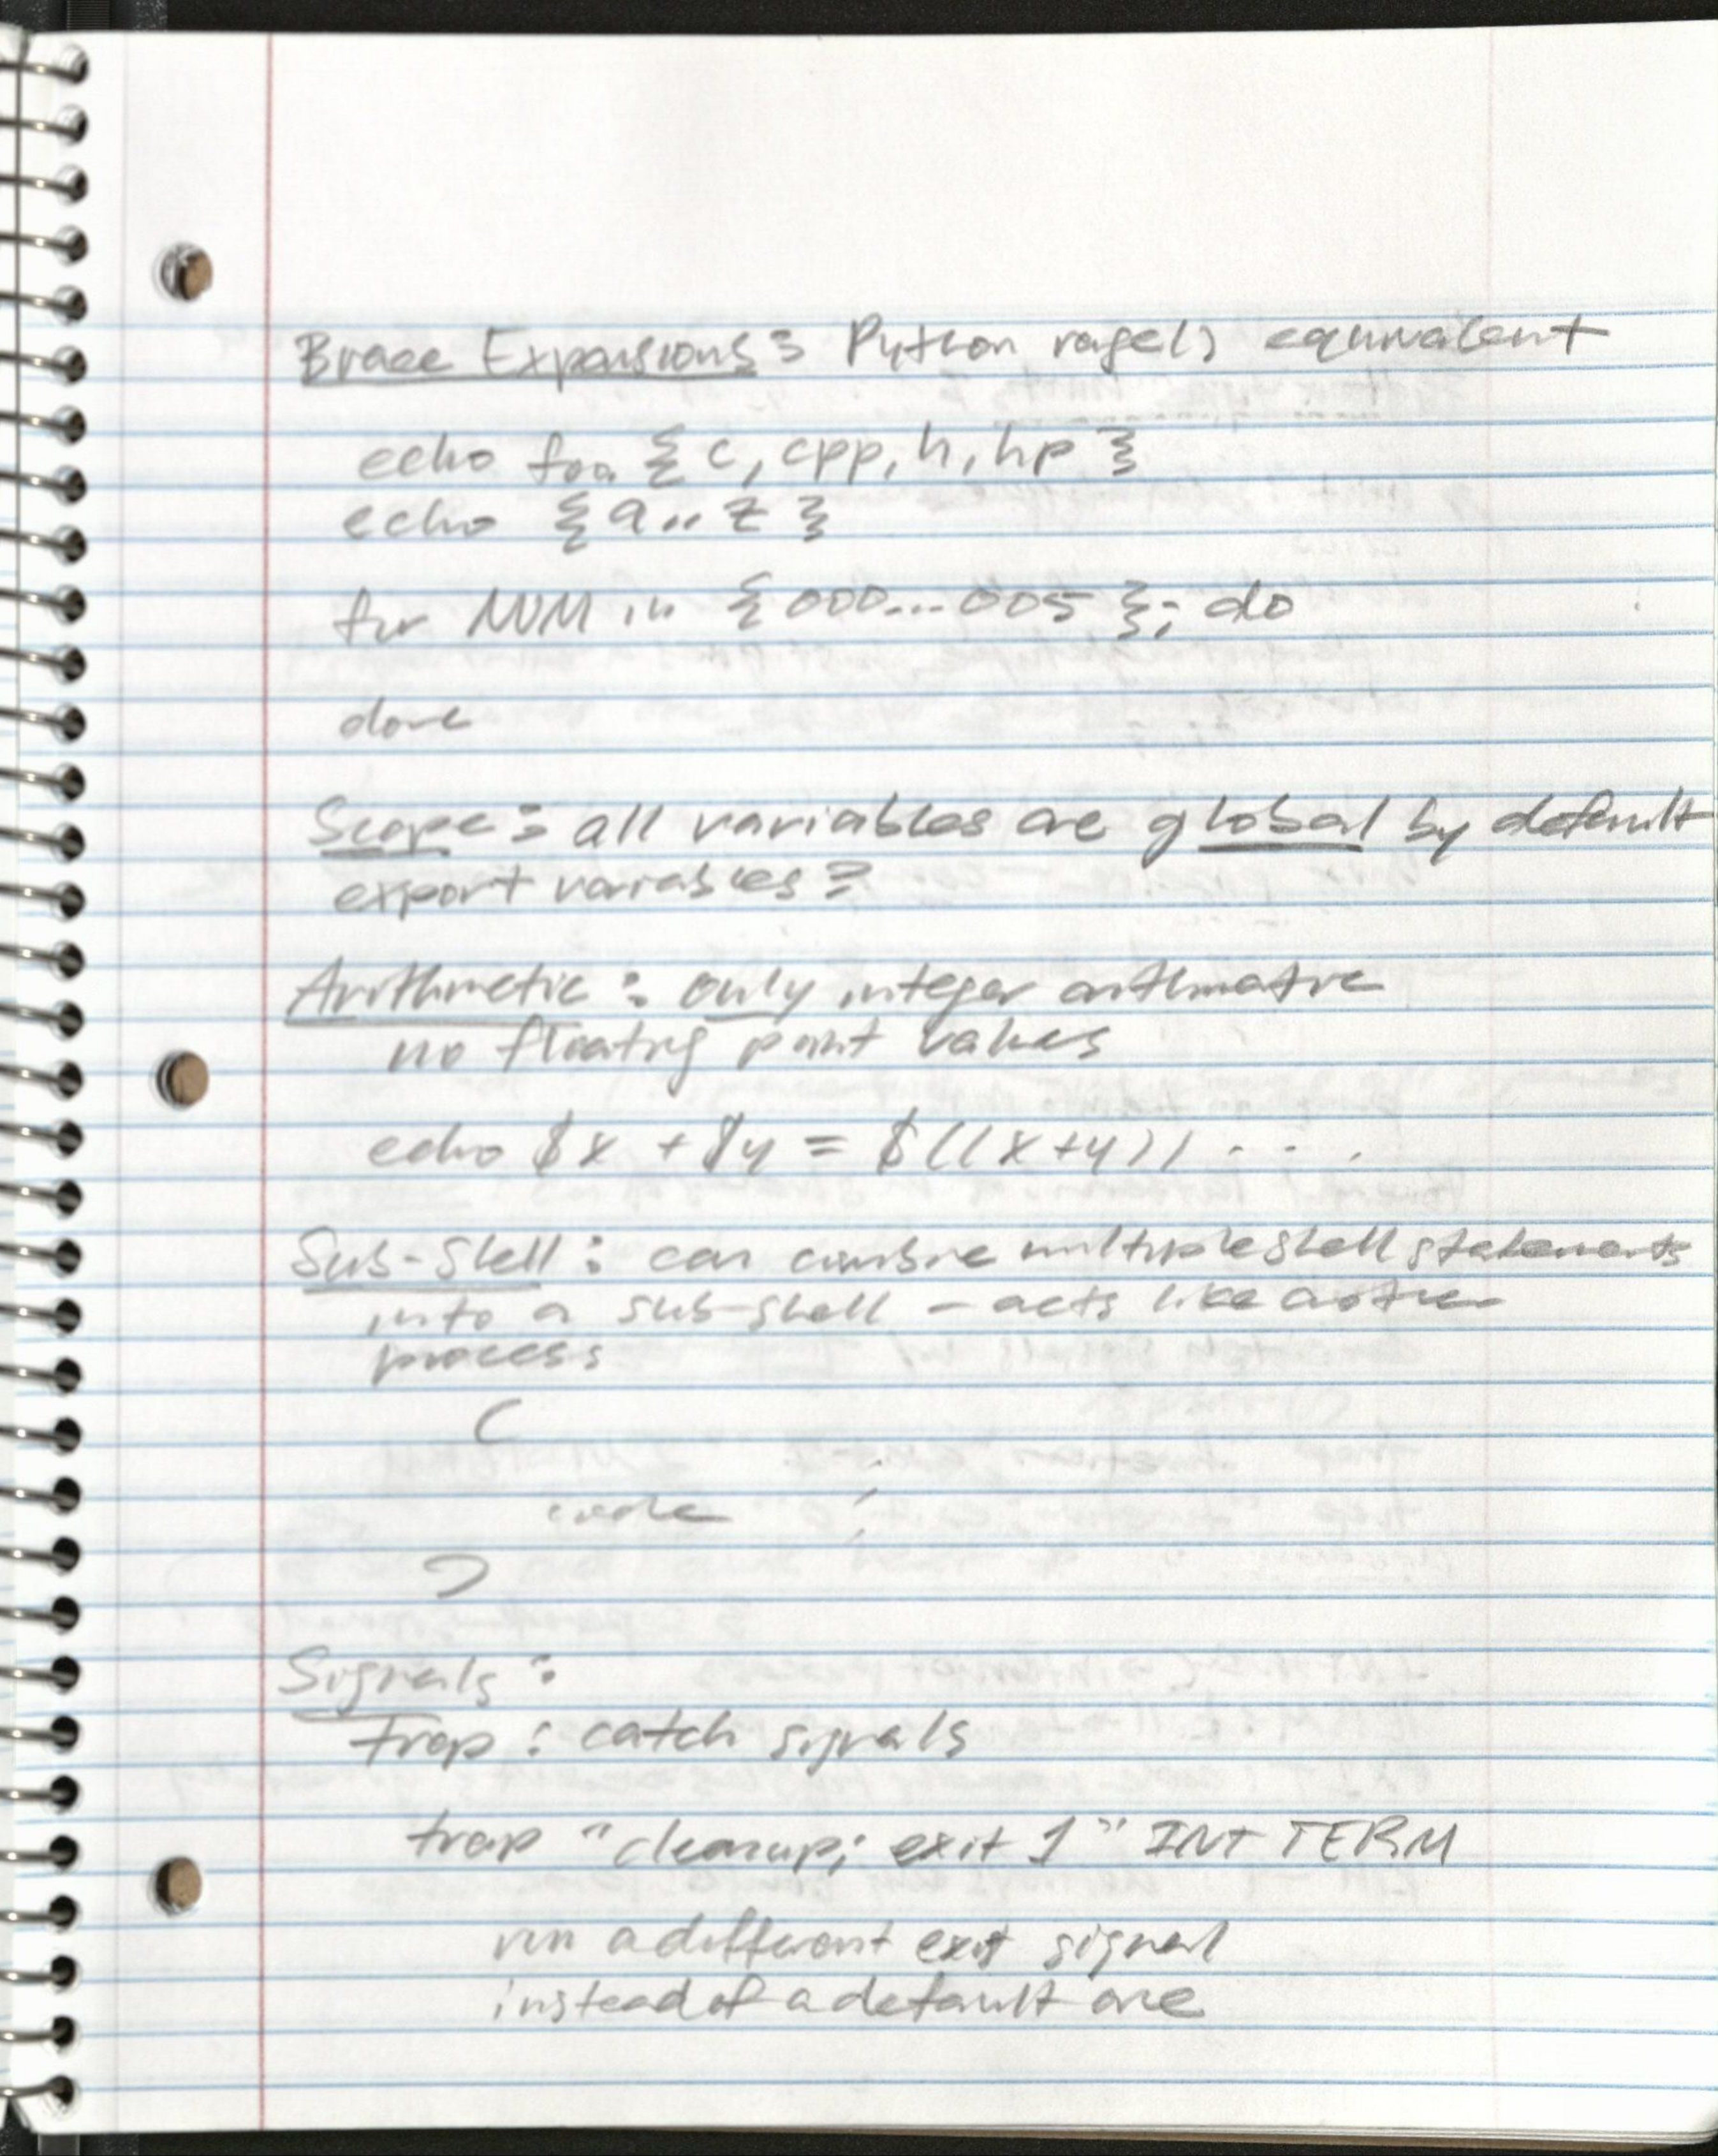 Brace Expansions: Python rage() equivalent
echo foo {c, cpp, h, hp}
echo {a..z}
for NUM in {000...005}; do
done
Scope: all variables are global by default
export variables?
Arithmetic: only integer arithmatic
no floating point values
echo $x + $y = $((x+y)) ....
Sub-Shell: can combine multiple shell statements
into a sub-shell - acts like another
process
(
code
)
Signals:
trap: catch signals
trap "cleanup; exit 1" INT TERM
run a different exit signal
instead of a default one